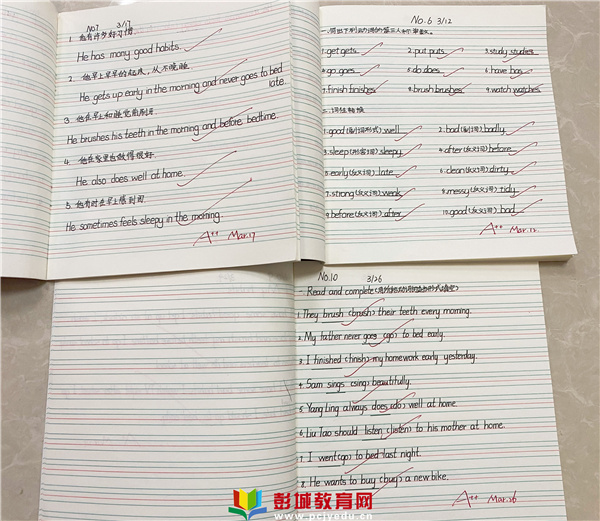 No7 3/17
1. 他有许多好习惯.
He has many good habits.
2. 他早上早早的起床,从不晚睡.
He gets up early in the morning and never goes to bed
late.
3. 他在早上和睡觉前刷牙.
He brushes his teeth in the morning and before bedtime.
4. 他在家里也做得很好.
He also does well at home.
5. 他有时在早上感到困.
He sometimes feels sleepy in the morning.
A++ Mar.17
No.6 3/12
一.写出下列动词的第三人称单数.
1.get gets. 2.put puts. 3.study studies.
4.go goes. 5.do does. 6.have has.
7.finish finishes. 8.brush brushes. 9.watch watches.
二.词性转换
1.good(副词形式) well 2.bad(副词) badly.
3.sleep(形容词) sleepy 4.after(反义词) before.
5.early(反义词) late. 6.clean(反义词) dirty.
7.strong(反义词) weak 8.messy(反义词) tidy.
9.before(反义词) after. 10.good(反义词) bad.
A++ Mar.12
No.10 3/26
一. Read and complete
1.They brush (brush) their teeth every morning.
2. My father never goes (go) to bed early.
3. I finished (finish) my homework early yesterday.
4. Sam sings (sing) beautifully.
5. Yang Ling always does (do) well at home.
6. Liu Tao should listen (listen) to his mother at home.
7. I went (go) to bed last night.
8. He wants to buy (buy) a new bike.
A++ Mar.26
彭城教育网
www.pcjyedu.cn